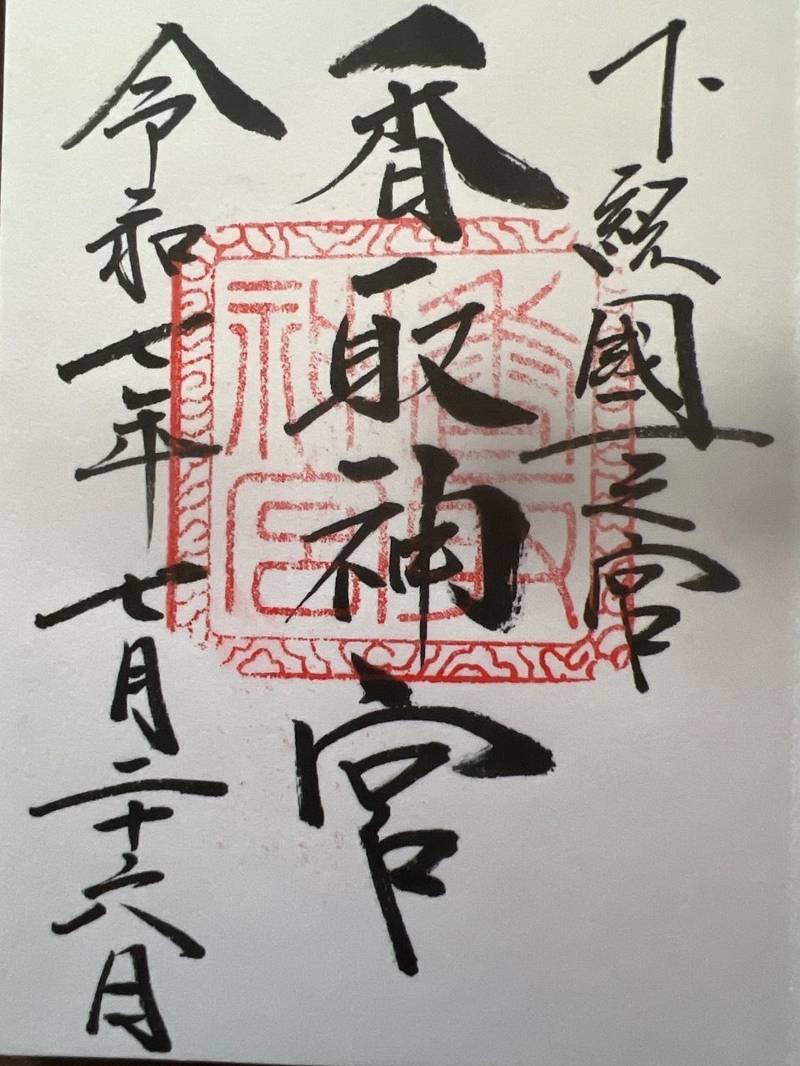 下総國一之宮
香取神宮
令和七年七月二十六日
香取
神宮